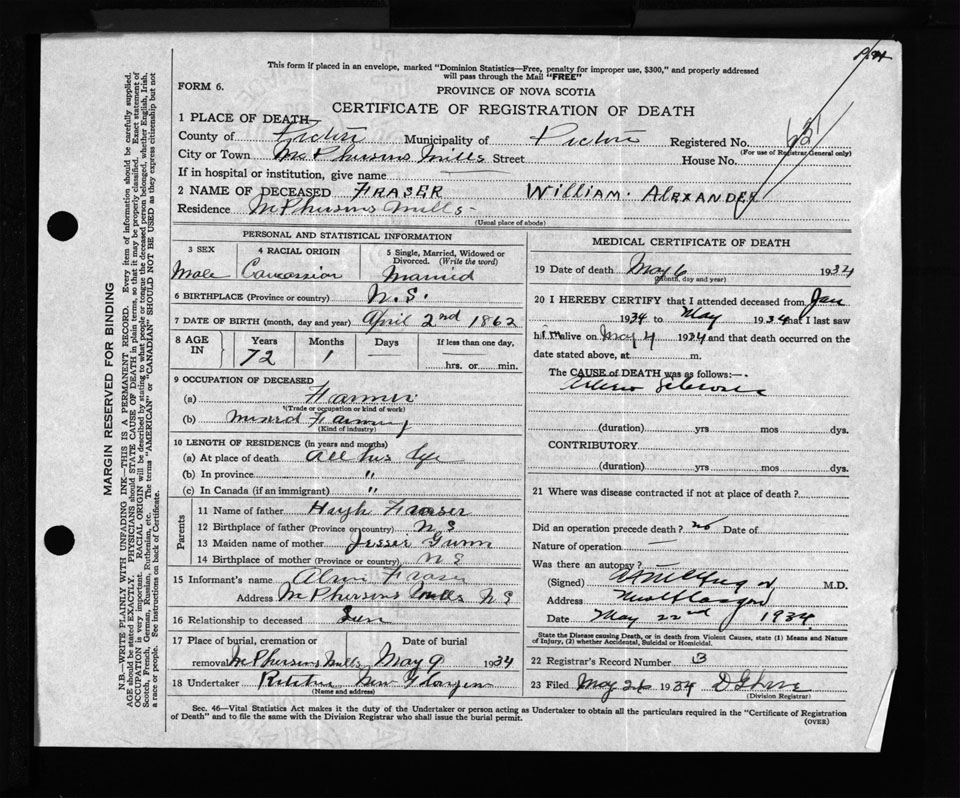 This form if placed in an envelope, marked "Dominion Statistics—Free, penalty for improper use, $300," and properly addressed
will pass through the Mail "FREE"
FORM 6.
PROVINCE OF NOVA SCOTIA
CERTIFICATE OF REGISTRATION OF DEATH
1 PLACE OF DEATH
County of Pictou Municipality of Pictou Registered No.
(For use of Registrar General only)
City or Town McPhersons Mills Street House No.
If in hospital or institution, give name
2 NAME OF DECEASED FRASER WILLIAM. ALEXANDER
Residence McPhersons Mills
(Usual place of abode)
PERSONAL AND STATISTICAL INFORMATION
3 SEX 4 RACIAL ORIGIN 5 Single, Married, Widowed or Divorced. (Write the word)
Male Caucassion Married
6 BIRTHPLACE (Province or country) N.S.
7 DATE OF BIRTH (month, day and year) April 2nd 1862
8 AGE IN Years Months Days If less than one day,
72 1 — hrs. or min.
9 OCCUPATION OF DECEASED
(a) Farmer
(Trade or occupation or kind of work)
(b) Mixed Farming
(Kind of industry)
10 LENGTH OF RESIDENCE (in years and months)
(a) At place of death All his life
(b) In province "
(c) In Canada (if an immigrant) "
Parents
11 Name of father Hugh Fraser
12 Birthplace of father (Province or country) N S
13 Maiden name of mother Jessie Gunn
14 Birthplace of mother (Province or country) N S
15 Informant's name Fraser
Address McPhersons Mills N S
16 Relationship to deceased Son
17 Place of burial, cremation or Date of burial
removal McPhersons Mills May 9 1934
18 Undertaker New Glasgow
(Name and address)
MEDICAL CERTIFICATE OF DEATH
19 Date of death May 6 1934
(month, day and year)
20 I HEREBY CERTIFY that I attended deceased from Jan
1934 to May 1934 that I last saw
him alive on May 4 1934 and that death occurred on the
date stated above, at m.
The CAUSE of DEATH was as follows:—
Arterio Sclerosis
(duration) yrs mos dys.
CONTRIBUTORY
(duration) yrs mos dys.
21 Where was disease contracted if not at place of death?
Did an operation precede death? no Date of
Nature of operation —
Was there an autopsy?
(Signed) M.D.
Address New Glasgow
Date May 22nd 1934
State the Disease causing Death, or in death from Violent Causes, state (1) Means and Nature
of Injury, (2) whether Accidental, Suicidal or Homicidal.
22 Registrar's Record Number 3
23 Filed May 26 1934
(Division Registrar)
Sec. 46—Vital Statistics Act makes it the duty of the Undertaker or person acting as Undertaker to obtain all the particulars required in the "Certificate of Registration
of Death" and to file the same with the Division Registrar who shall issue the burial permit.
(OVER)
MARGIN RESERVED FOR BINDING
N.B.—WRITE PLAINLY WITH UNFADING INK—THIS IS A PERMANENT RECORD. Every item of information should be carefully supplied.
AGE should be stated EXACTLY. PHYSICIANS should STATE CAUSE OF DEATH in plain terms, so that it may be properly classified. Exact statement of
OCCUPATION is very important. RACIAL ORIGIN will be described by stating to what people or tongue the deceased person belonged, whether English, Irish,
Scotch, French, German, Russian, Ruthenian, etc. The terms "AMERICAN" or "CANADIAN" SHOULD NOT BE USED as they express citizenship but not
a race or people. See instructions on back of Certificate.